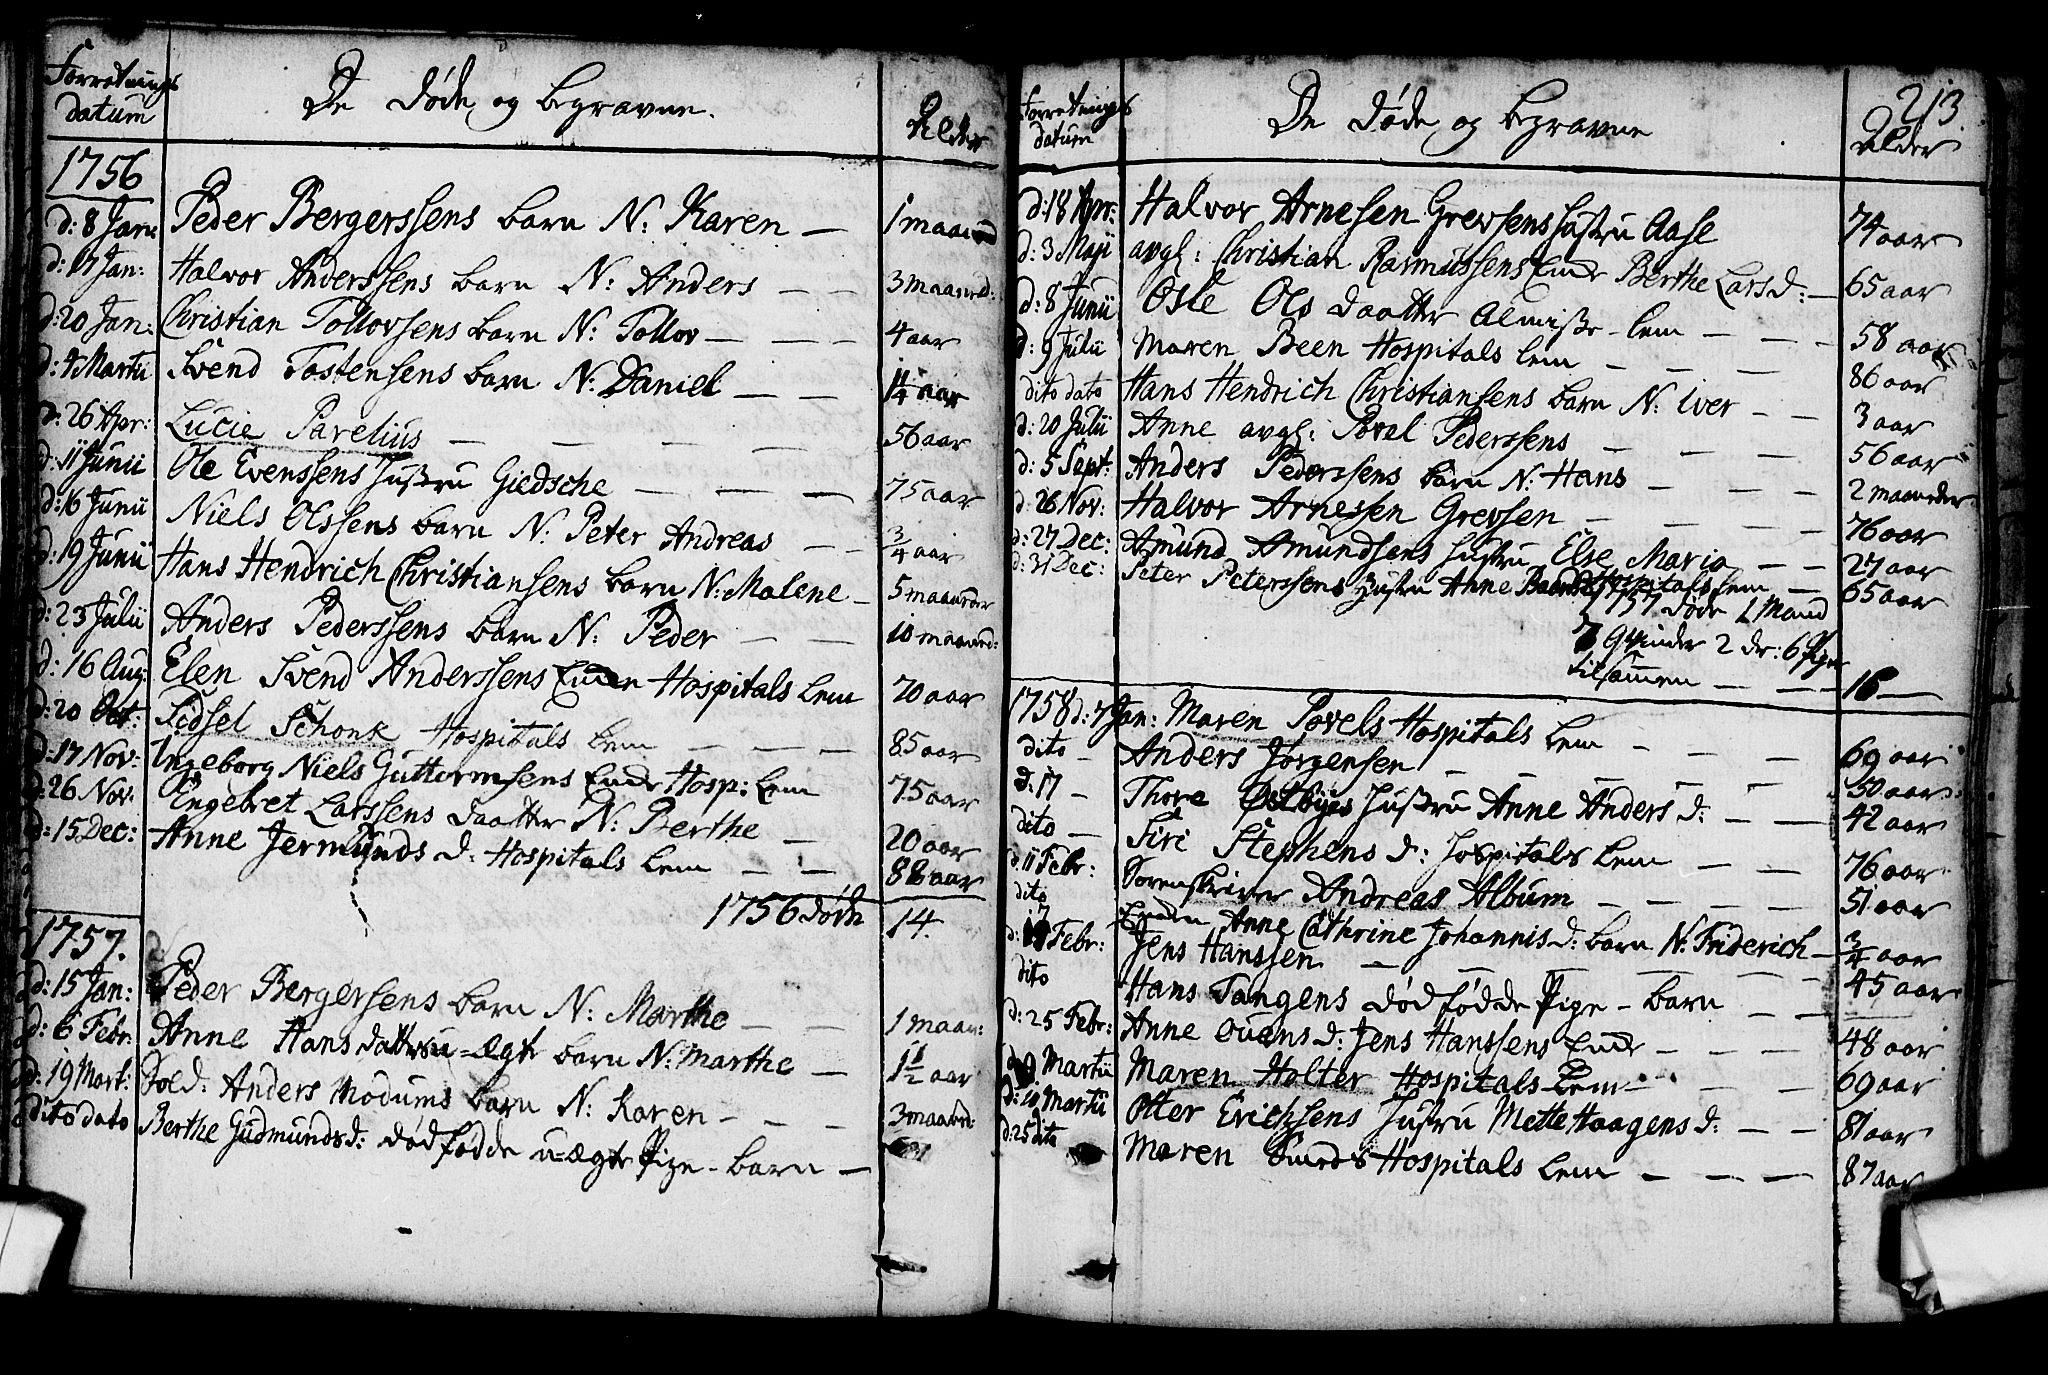 Forretnings
datum
De døde og begravne.
Alder
1756
d: 8 Jan: Peder Bergerssens barn N: Karen — 1 maaned
d: 17 Jan: Halvor Anderssens barn N: Anders — — 3 maaned:
d: 20 Jan: Christian Tollovsens barn N: Tollov — — — 4 aar
d: 4 Martii Svend Tostensens barn N: Daniel — — 1 1/4 aar
d: 26 Apr: Lucie Parelius — — — — 56 aar
d: 11 Junii Ole Evenssens Hustru Giedsche — — — 75 aar
d: 16 Junii Niels Olssens barn N: Peter Andreas — — 3/4 aar
d: 19 Junii Hans Hendrich Christiansens barn N: Malene — 5 maaneder
d: 23 Julii Anders Pederssens barn N: Peder — — 10 maaned:
d: 16 Aug: Elen Svend Anderssens Enke Hospitals Lem 70 aar
d: 20 Oct: Sidsel Schonk Hospitals Lem — — — 85 aar
d: 17 Nov: Ingeborg Niels Guttormsens Enke Hosp: Lem 75 aar
d: 26 Nov: Engebret Larssens daatter N: Berthe — 20 aar
d: 15 Dec: Anne Jermunds d: Hospitals Lem — — 88 aar
1756 døde 14.
1757.
d: 15 Jan: Peder Bergersens barn N: Marthe — — 1 maan:
d: 6 Febr: Anne Hansdatters u-ægte barn N: Marthe — 1 1/2 aar
d: 19 Mart: Sold: Anders Modums barn N: Karen — — — 3 maaned:
dito dato Berthe Gudmunds d: dødfødde u-ægte Pige-barn —
213.
Forretnings
datum
De døde og begravne
Alder
d: 18 Apr: Halvor Arnesen Grevsens Hustru Aase 74 aar
d: 3 Maji avgl: Christian Rasmussens Enke Berthe Lars d: — 65 aar
d: 8 Junii Osle Ols daatter Almisse-lem — — — 58 aar
d: 9 Julii Maren Been Hospitals Lem — — — 86 aar
dito dato Hans Hendrich Christiansens barn N: Iver — — 3 aar
d: 20 Julii Anne avgl: Povel Pederssens — — — 56 aar
d: 5 Sept: Anders Pederssens barn N: Hans — — — 2 maaneder
d: 26 Nov: Halvor Arnessen Grevsen — — — — 76 aar
d: 27 Dec: Amund Amundsens Hustru Else Maria — — 27 aar
d: 31 Dec: Peter Peterssens Hustru Anne Hospitals Lem — 65 aar
1757 døde 1 Mand
7 Qvinder 2 dr: 6 Piger
tilsammen — — — 16 —
1758 d: 7 Jan: Maren Povels Hospitals Lem — — 69 aar
dito — Anders Jørgensen — — — — — 50 aar
d: 17 — Thore Østbyes Hustru Anne Anders d: — — 42 aar
dito — Siri Stephens d: Hospitals Lem — — — 76 aar
d: 11 Febr: Sorenskriver Andreas Album — — — — 51 aar
dito Enken Anne Cathrine Johannis d: barn N: Friderich — 3/4 aar
d: 17 Febr: Jens Hanssen — — — — — 45 aar
dito Hans Tangens dødfødde Pige-barn — —
d: 25 Febr: Anne Ouens d: Jens Hanssens Enke — — — 48 aar
Martii Maren Holter Hospitals-Lem — — — 69 aar
d: 10 Martii Otter Erichsens Hustru Mette Haagens d: — — 81 aar
d: 25 dito Maren Smeds Hospitals Lem — — — 87 aar